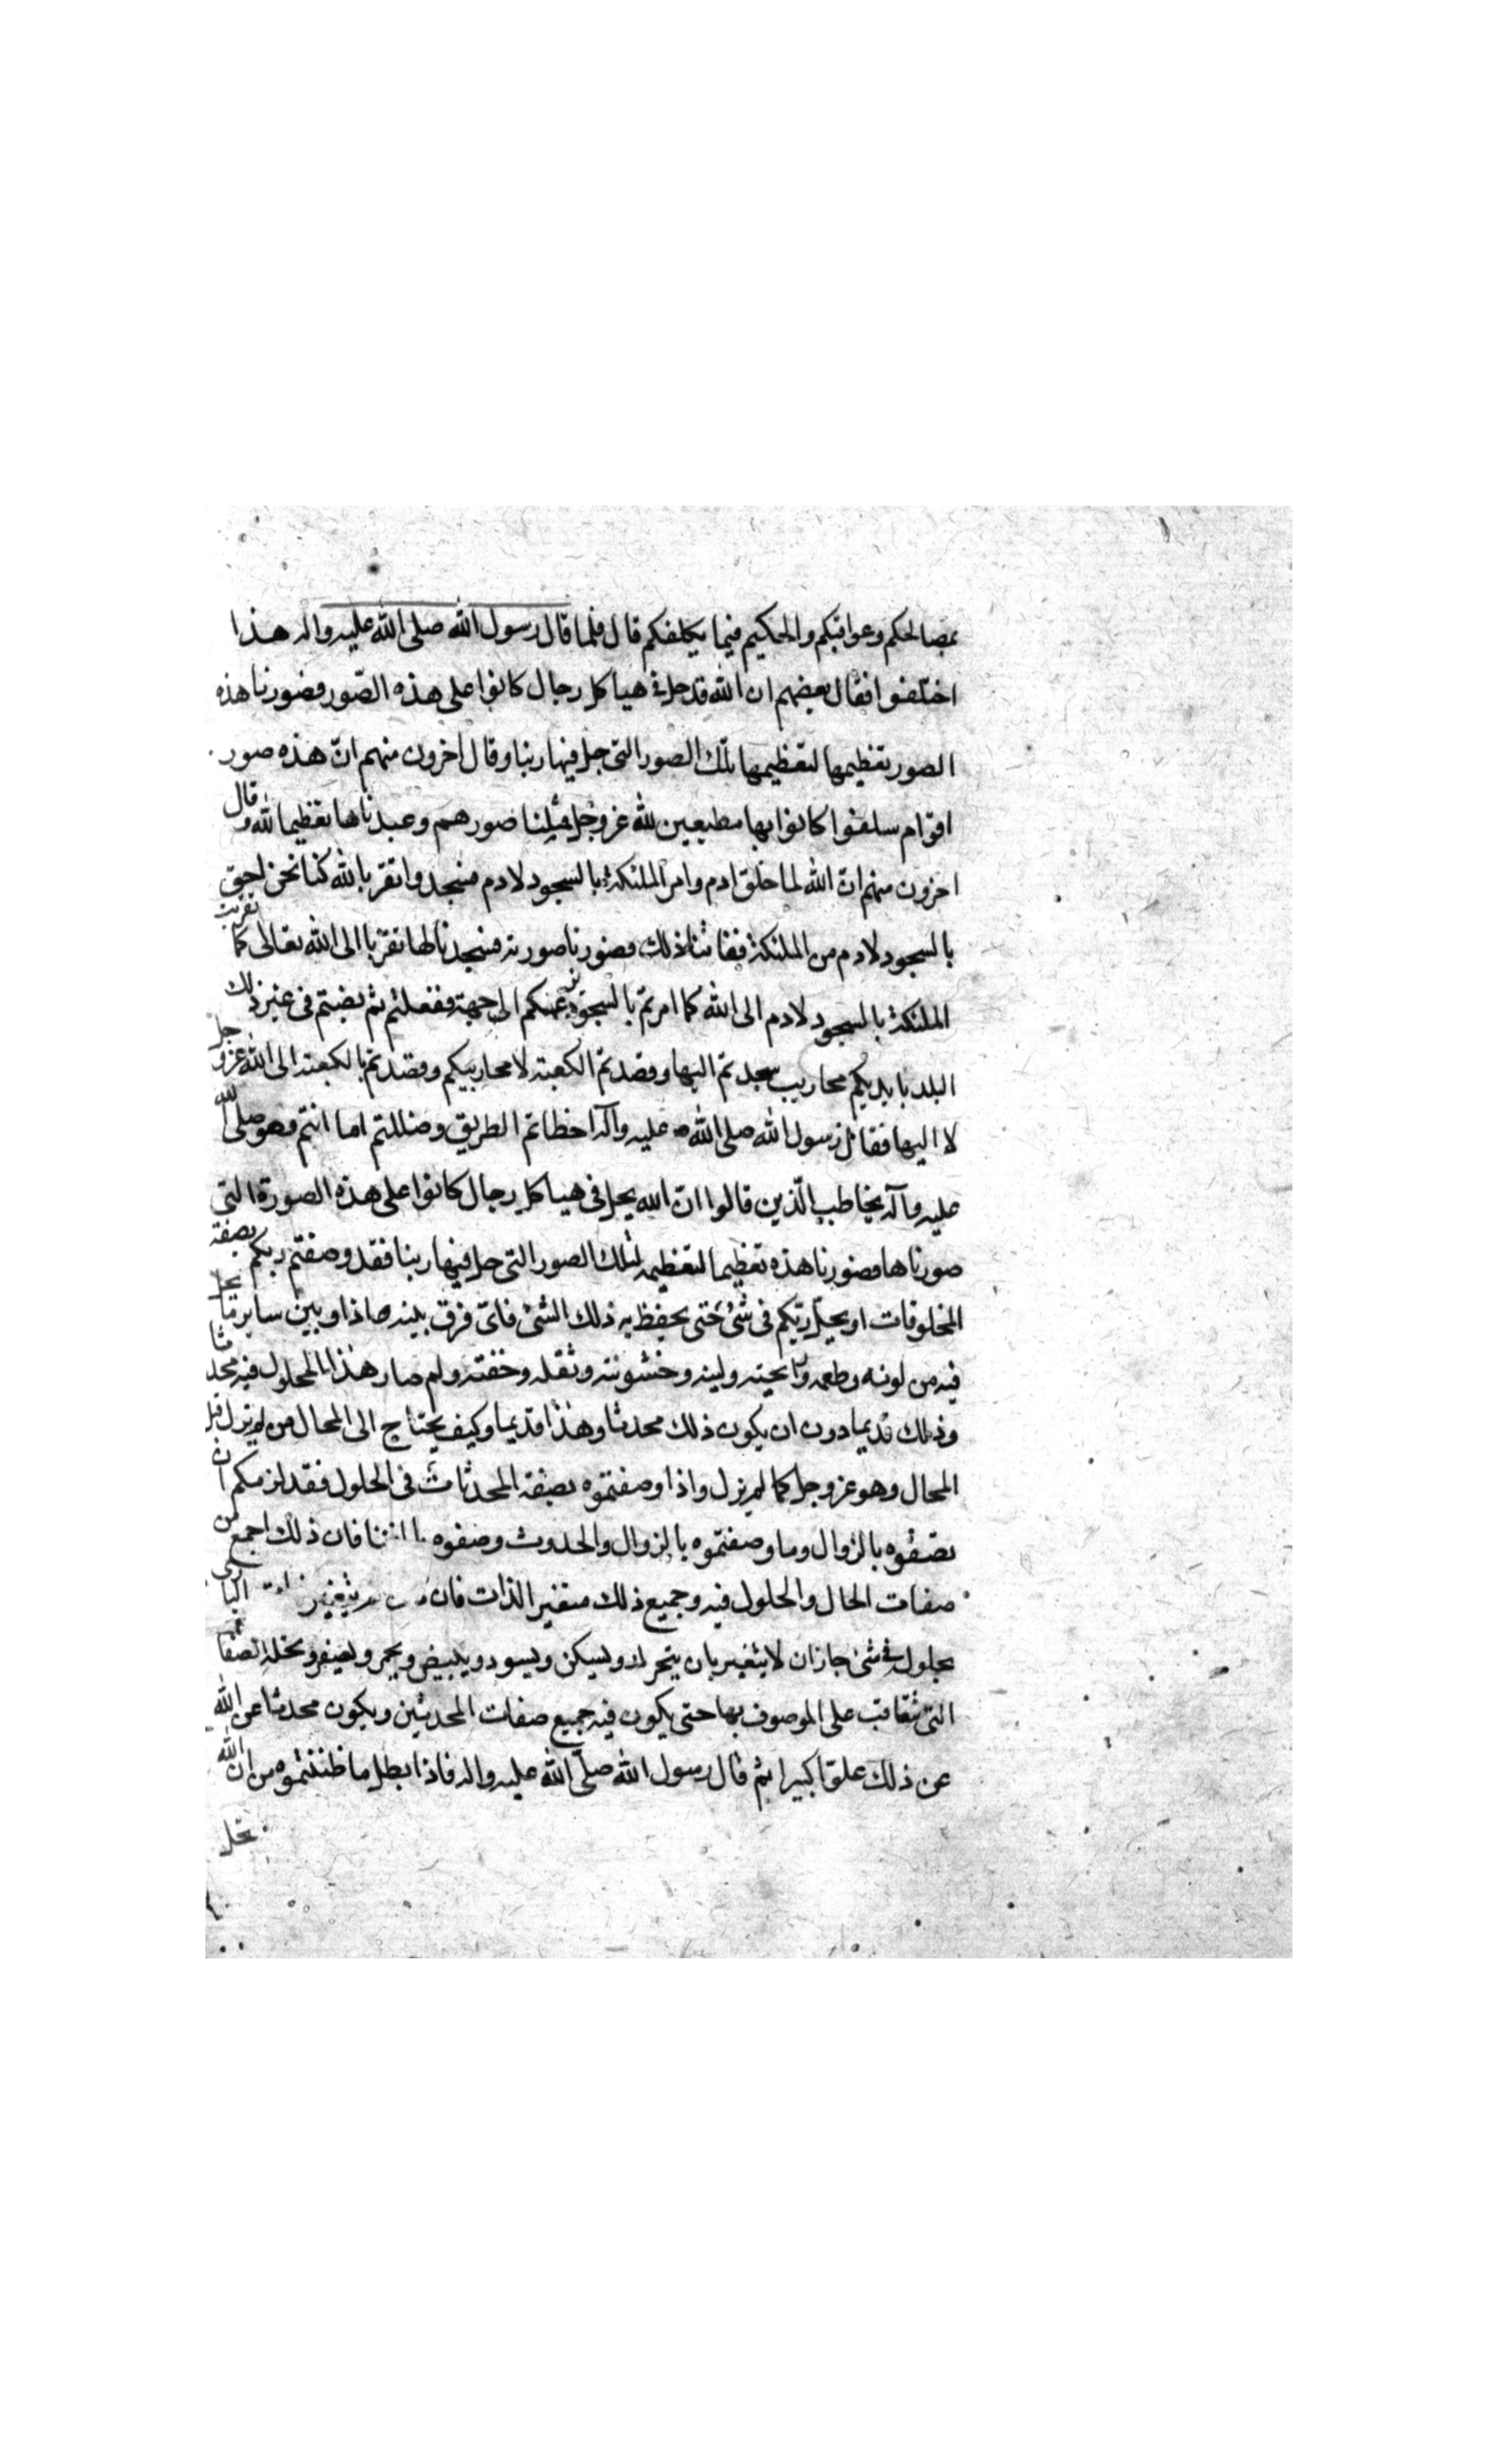 بمصالحكم وعواقبكم والحكيم فيما يكلفكم قال فلما قال رسول الله صلى الله عليه واله هذا
اختلفوا فقال بعضهم ان الله قد حل في هياكل رجال كانوا على هذه الصور فصورنا هذه
الصور تعظيمها لتعظيمها تلك الصور التى حل فيها ربنا وقال اخرون منهم ان هذه صور
اقوام سلفوا كانوا بها مطيعين لله عز وجل فمثلنا صورهم وعبدناها تعظيما لله وقال
اخرون منهم ان الله لما خلق ادم وامر الملئكة بالسجود لادم فسجدوا تقربا لله كنا نحن احق
بالسجود لادم من الملئكة ففاتنا ذلك فصورنا صورته فسجدنا لها تقربا الى الله تعالى كما تقربت
الملئكة بالسجود لادم الى الله كما امرتم بالسجود بزعمكم الى جهة ففعلتم ثم نصبتم فى غير ذلك
البلد بايديكم محاريب سجدتم اليها وقصدتم الكعبة لا محاريبكم وقصدتم بالكعبة الى الله عز وجل
لا اليها فقال رسول الله صلى الله عليه وآله اخطاتم الطريق وضللتم اما انتم وهو صلى الله
عليه وآله يخاطب الذين قالوا ان الله يحل فى هياكل رجال كانوا على هذه الصورة التى
صورناها فصورنا هذه تعظيما لتعظيمه لتلك الصور التى حل فيها ربنا فقد وصفتم ربكم بصفة
المخلوقات او يحل ربكم فى شئ حتى يحفظ به ذلك الشئ فاى فرق بينه هاذا وبين ساير ما يحل
فيه من لونه وطعمه ورايحته ولينه وخشونته وثقله وخفته ولم صار هذا المحلول فيه محدثا
وذلك قديما دون ان يكون ذلك محدثا وهذا قديما وكيف يحتاج الى المحال من لم يزل قبل
المحال وهو عز وجل كما لم يزل واذا وصفتموه بصفة المحدثات فى الحلول فقد لزمكم ان
تصفوه بالزوال وما وصفتموه بالزوال والحدوث وصفوه بالفنا فان ذلك اجمع من
صفات الحال والحلول فيه وجميع ذلك متغير الذات فان لم يتغير ذات البارى
بحلوله فى شئ جاز ان لا يتغير بان يتحرك ويسكن ويسود ويبيض ويحمر ويصفر وتحله الصفات
التى تتعاقب على الموصوف بها حتى يكون فيه جميع صفات المحدثين ويكون محدثا عن الله
عن ذلك علوا كبيرا ثم قال رسول الله صلى الله عليه واله فاذا بطل ما ظننتموه من ان الله
يحل